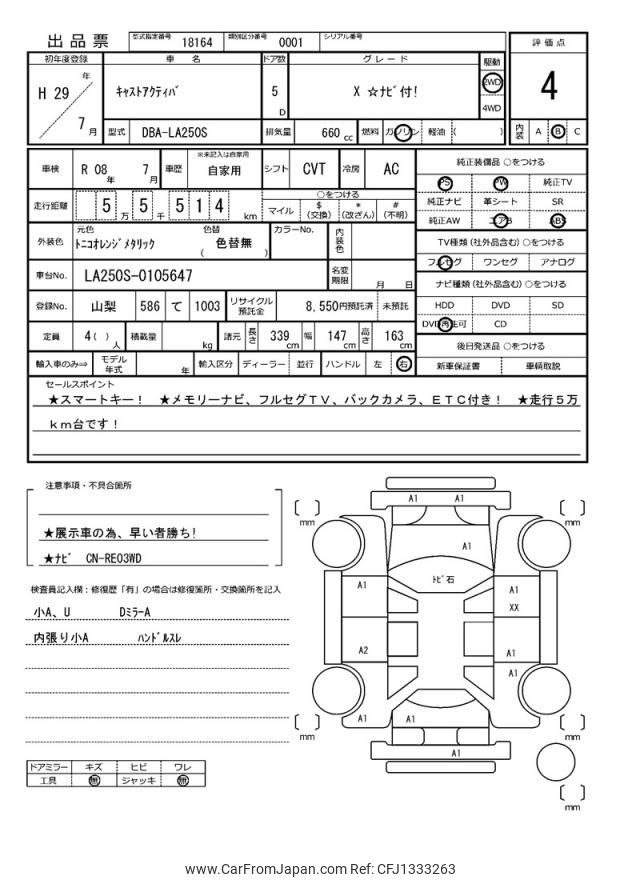 出品票 型式指定番号 18164 類別区分番号 0001 シリアル番号
評価点
4
内装 A B C
初年度登録 車名 ドア数 グレード 駆動
H 29 年 7 月
ｷｬｽﾄｱｸﾃｨﾊﾞ 5 D X ☆ﾅﾋﾞ付! 2WD
4WD
型式 DBA-LA250S 排気量 660 cc 燃料 ガソリン 軽油 ( )
車検 R 08 年 7 月 車歴 ※未記入は自家用 自家用 シフト CVT 冷房 AC
走行距離 5 万 5 千 5 1 4 km
○をつける
マイル $ (交換) * (改ざん) # (不明)
外装色 元色 ﾄﾆｺｵﾚﾝｼﾞﾒﾀﾘｯｸ 色替 ( 色替無 ) カラーNo. 内装色
車台No. LA250S-0105647 名変期限 月 日
登録No. 山梨 586 て 1003 リサイクル預託金 8,550円預託済 未預託
定員 4 ( ) 人 積載量 kg 諸元 長さ 339 cm 幅 147 cm 高さ 163 cm
輸入車のみ⇒ モデル年式 年 輸入区分 ディーラー 並行 ハンドル 左 右
純正装備品 ○をつける
PS PW 純正TV
純正ナビ 革シート SR
純正AW エアB ABS
TV種類 (社外品含む) ○をつける
フルセグ ワンセグ アナログ
ナビ種類 (社外品含む) ○をつける
HDD DVD SD
DVD再生可 CD
後日発送品 ○をつける
新車保証書 車輌取説
セールスポイント
★スマートキー！ ★メモリーナビ、フルセグＴＶ、バックカメラ、ＥＴＣ付き！ ★走行５万
ｋｍ台です！
注意事項・不具合箇所
★展示車の為、早い者勝ち!
★ﾅﾋﾞ CN-RE03WD
検査員記入欄：修復歴「有」の場合は修復箇所・交換箇所を記入
小A、U DﾐﾗｰA
内張り小A ﾊﾝﾄﾞﾙｽﾚ
ドアミラー キズ ヒビ ワレ
工具 無 ジャッキ 無
A1 A1
mm mm
A1
ﾄﾋﾞ石
A1 A1
XX
A2 A1
A1
A1 A1
mm mm
A1
mm
www.CarFromJapan.com Ref: CFJ1333263